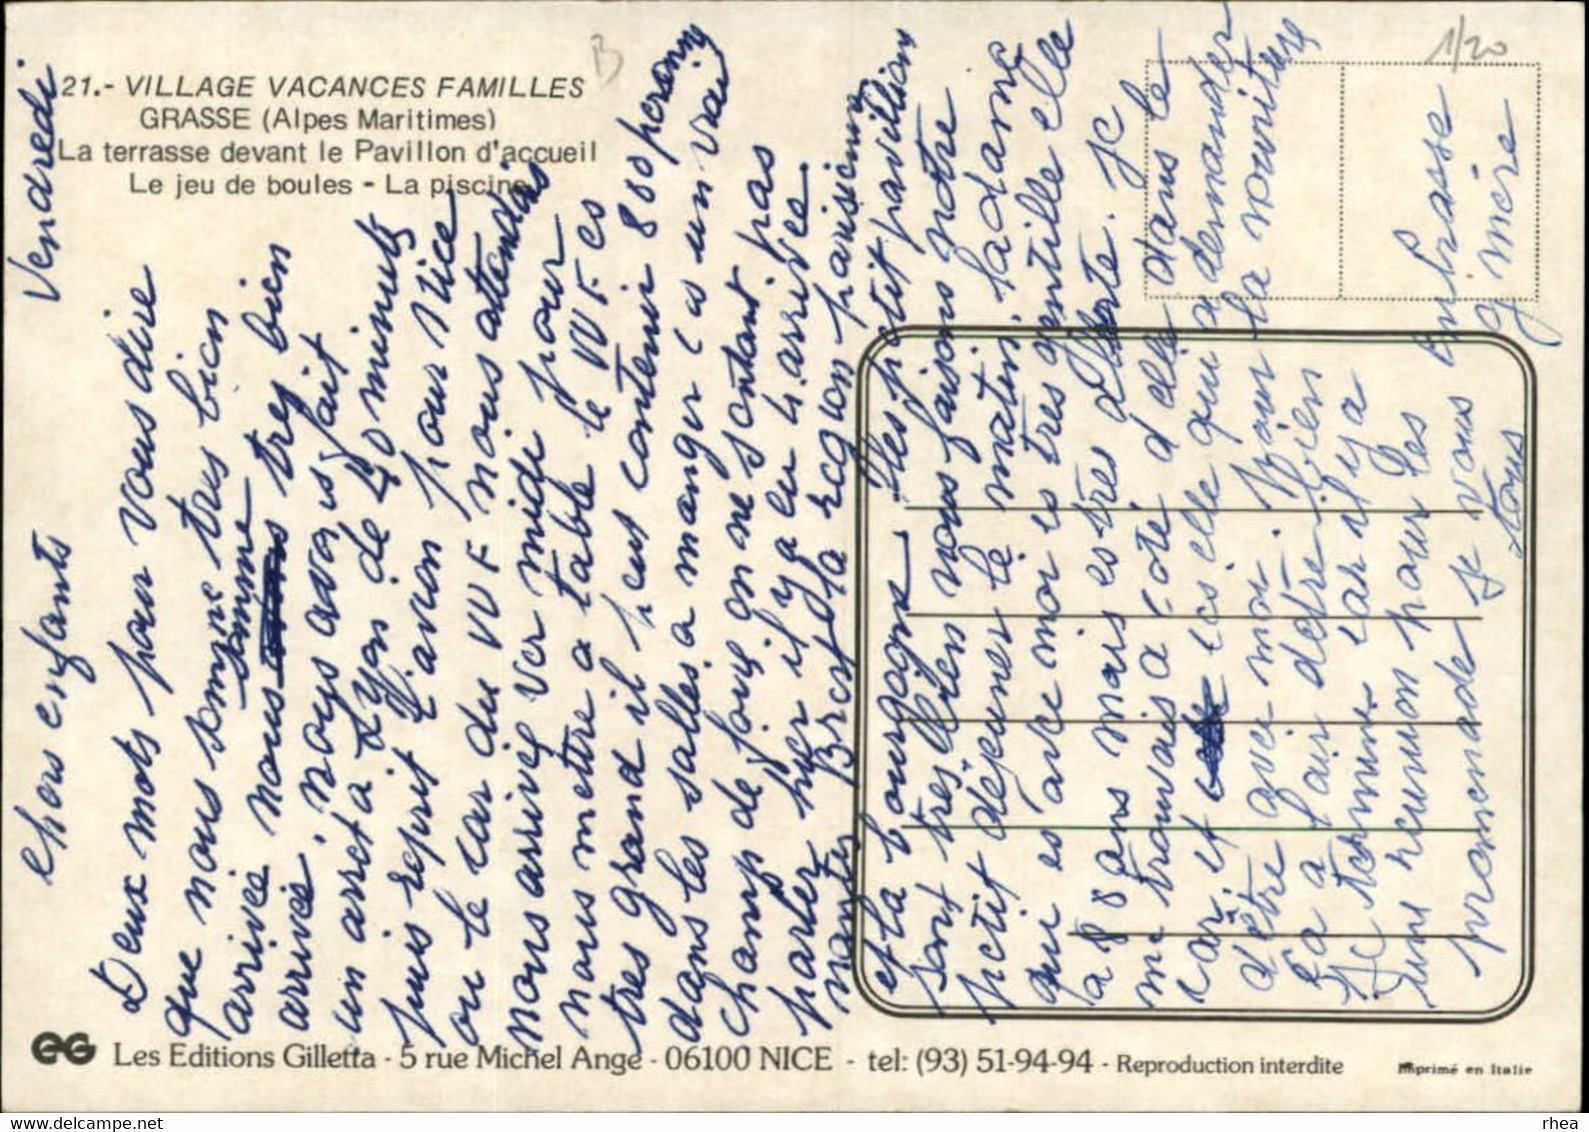 21.- VILLAGE VACANCES FAMILLES
GRASSE (Alpes Maritimes)
La terrasse devant le Pavillon d'accueil
Le jeu de boules - La piscine
B
1/20
Vendredi
Chers enfants
Deux mots pour vous dire
que nous somme tres bien
arrivée nous somme tres bien
arrivée, nous avons fait
un arret a Lyon de 40 minuts
puis reprit l'avion pour Nice
ou le car du VVF nous attendais
nous arrives ver midi pour
nous metre a table le VVF es
tres grand il peus contenir 800 personne
dans les salles a manger ces un vrai
champ de fous on ne sentant pas
parler hier il y a eu 4 arrivée
nantes Brest la region parisienne
et la bourgogne. Les petit pavillions
sont tres bien nous faisons notre
petit déjeuner le matin, la dame
qui es avec moi es tres gentille elle
a 88 ans mais es tres alerte. Je
me trouvais a coté d'elle dans le
car et ces elle qui a demander
d'être avec moi. Pour la nouriture
sa a l'air d'etre bien
Je termine car il y a
une reunion pour les
promenade je vous embrasse
tous
g mère
GG Les Editions Gilletta - 5 rue Michel Ange - 06100 NICE - tel: (93) 51-94-94 - Reproduction interdite
Imprimé en Italie
www.delcampe.net
rhea